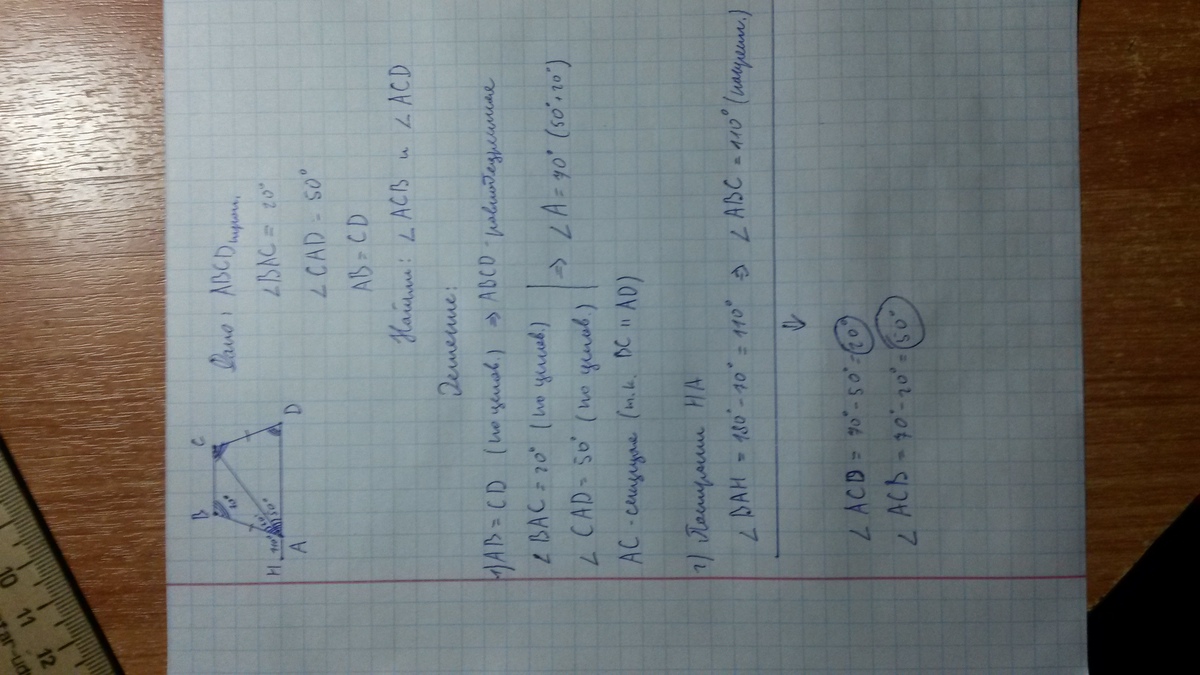 Дано: ABCD трап.
∠BAC = 20°
∠CAD = 50°
AB = CD
Найти: ∠ACB и ∠ACD
Решение:
1) AB = CD (по услов.) ⇒ ABCD - равнобедренная
∠BAC = 20° (по услов.)
∠CAD = 50° (по услов.) ⇒ ∠A = 70° (50°+20°)
AC - секущая (т.к. BC || AD)
2) Построим HA
∠BAH = 180° - 70° = 110° ⇒ ∠ABC = 110°
∠ACD = 70° - 50° = 20°
∠ACB = 70° - 20° = 50°
H
A
B
C
D
20°
50°
10
11
12